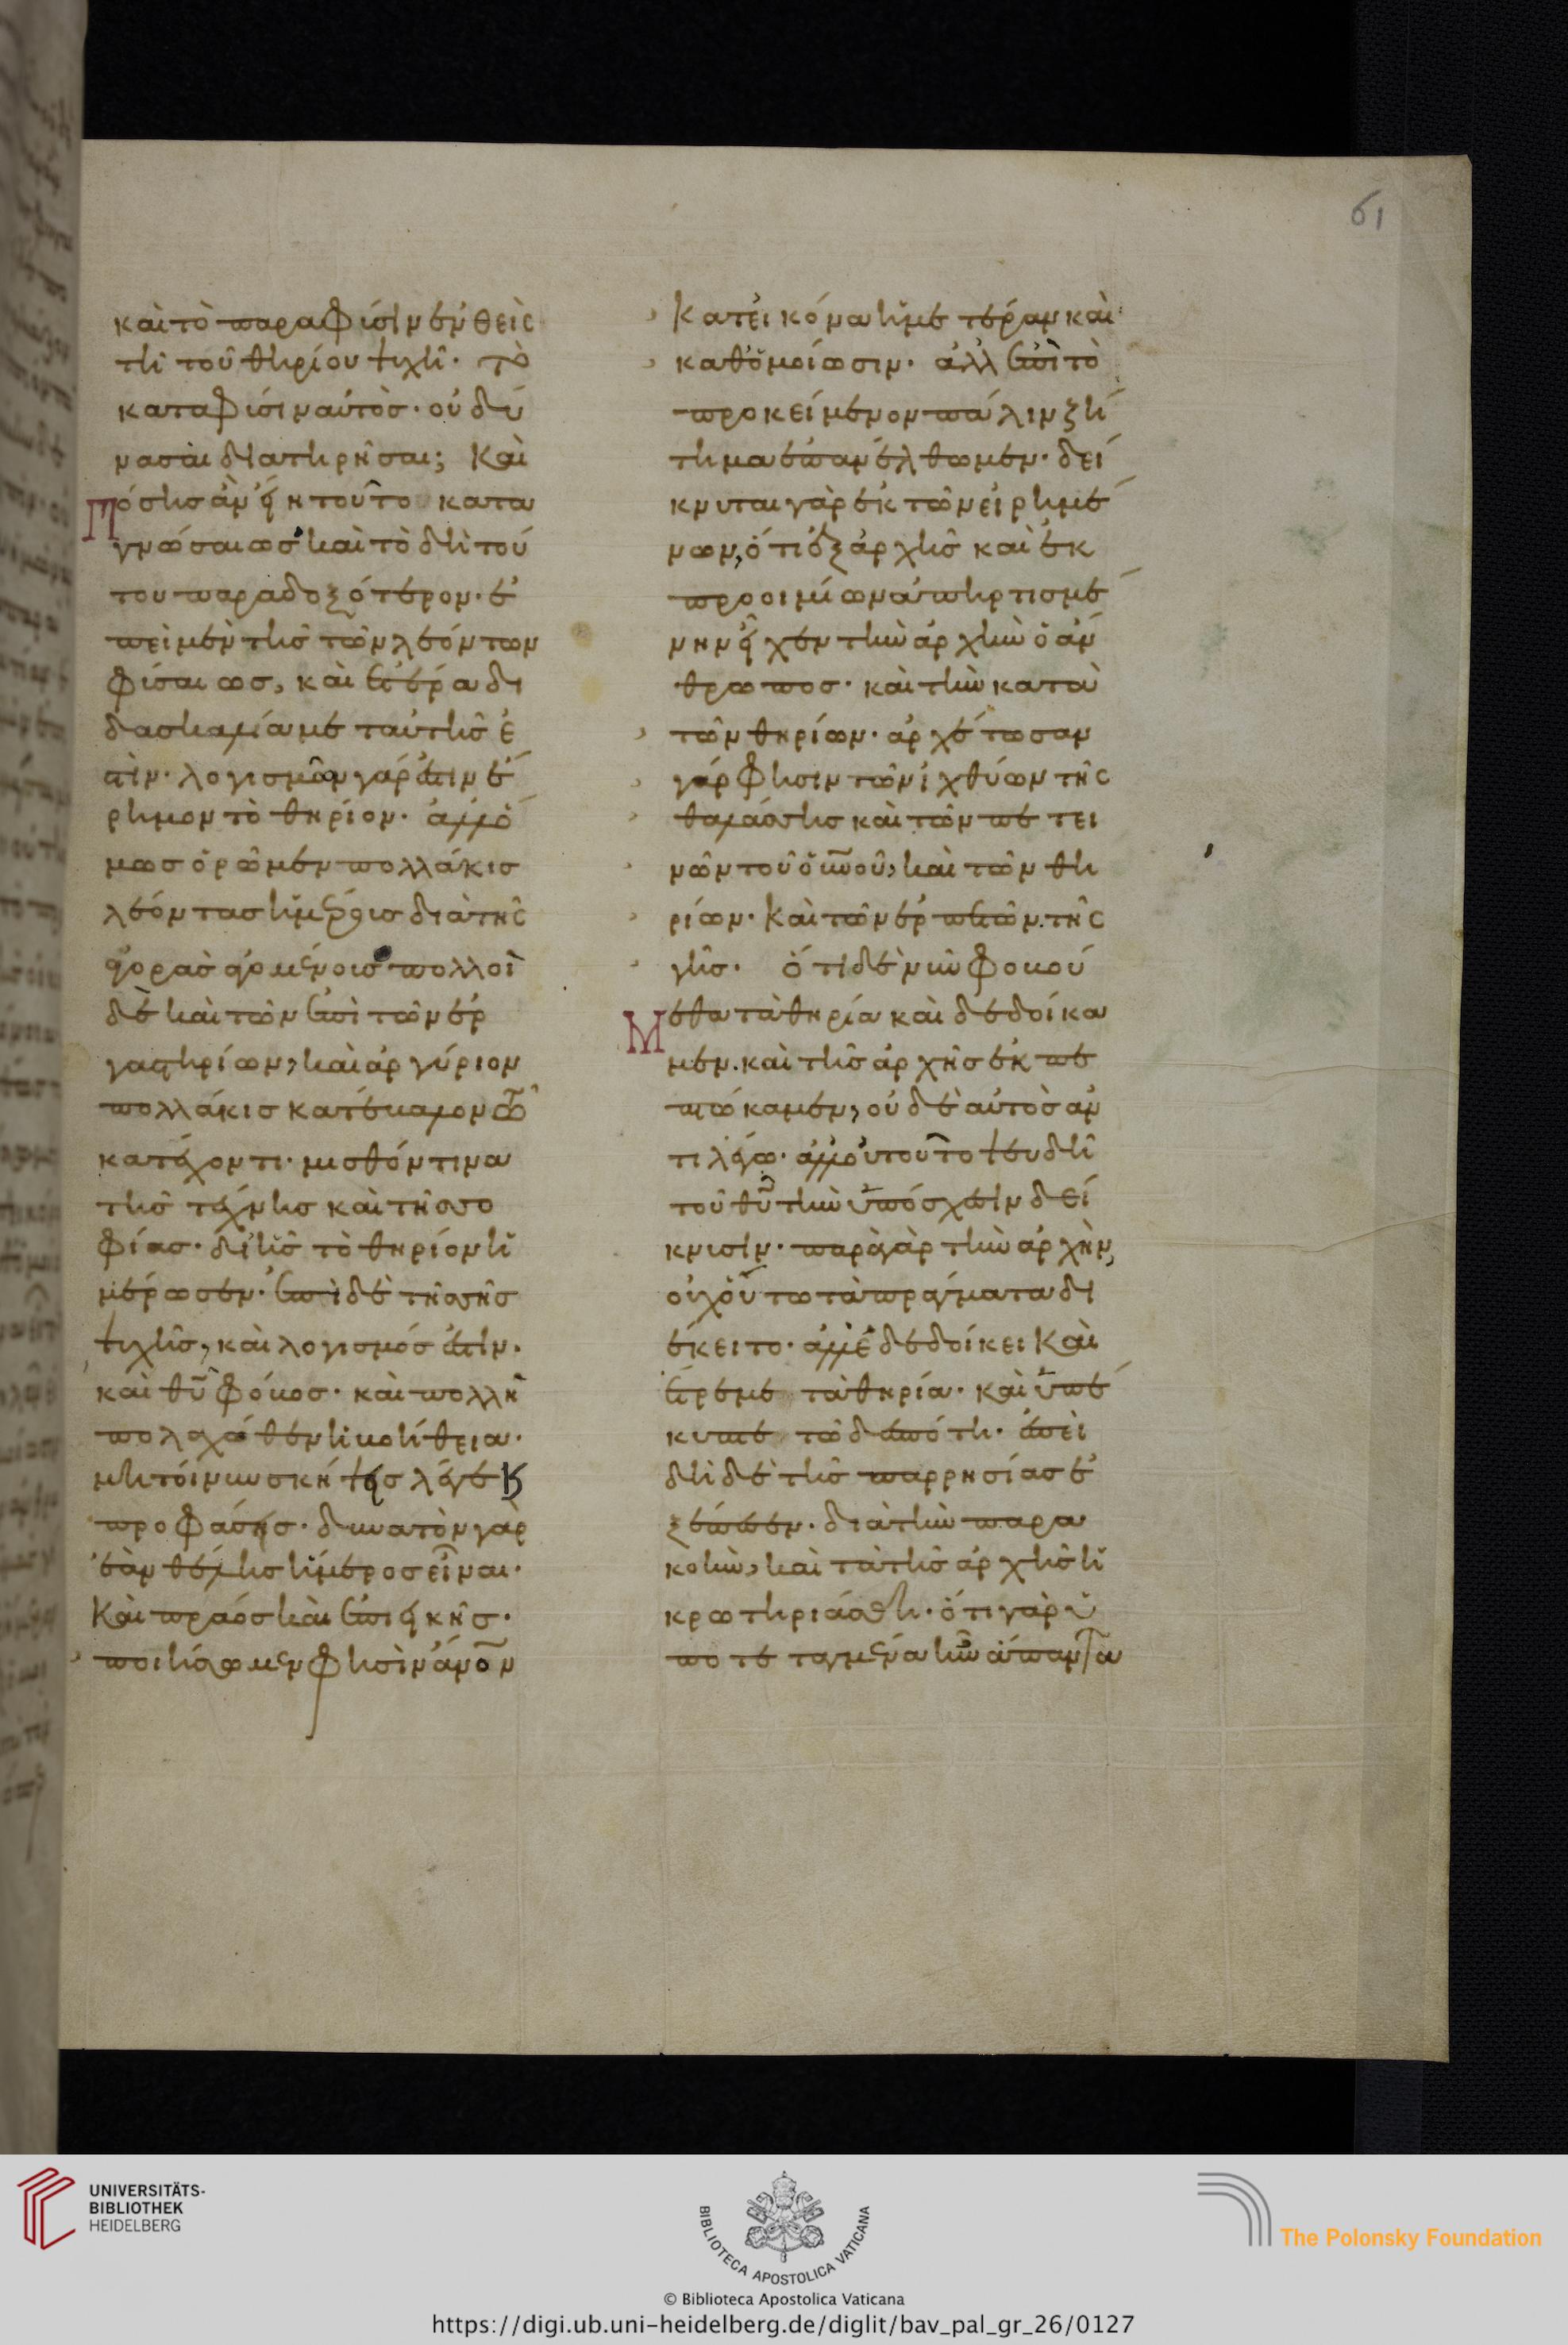 καὶ τὸ παρὰ φύσιν ἐνθεὶς
τῆ τοῦ θηρίου ψυχῆ. τὸ
κατὰ φύσιν αὐτὸς. οὐ δύ
νασαι διατηρῆσαι; Καὶ
Πόσης ἂν εἴη τοῦτο κατα
γνώσεως καὶ τὸ δὴ τού
του παραδοξότερον. ἐ
πεὶ μὲν τῆς τῶν λεόντων
φύσεως, καὶ ἑτέρα δι
δασκαλία με ταύτης ἐ
στὶν. λογισμῶν γάρ ἐστιν ἔ
ρημον τὸ θηρίον. ἀλλ ὅ
μως ὁρῶμεν πολλάκις
λέοντας ἡμέρους διὰ τῆς
ἀγορᾶς ἀγομένους πολλοὶ
δὲ καὶ τῶν ἐπὶ τῶν ἐρ
γαστηρίων, καὶ ἀργύριον
πολλάκις κατέβαλον τῶ
κατέχοντι. μισθόν τινα
τῆς τέχνης καὶ τῆς σο
φίας. δι ἧς τὸ θηρίον ἡ
μέρωσεν. ἐπὶ δὲ τῆς σῆς
ψυχῆς, καὶ λογισμός ἐστιν.
καὶ θῦ φόβος. καὶ πολλὴ
πολαχόθεν ἡ βοήθεια.
μὴ τοίνυν σκήψεις λέγε κ
προφάσεις. δυνατὸν γὰρ
ἐὰν θέλης ἥμερος εἶναι.
Καὶ πραός καὶ ἐπιεικής.
ποιήσωμεν φησὶν ἄνον
61
Κατ εἰκόνα ἡμετέραν καὶ
καθ ὁμοίωσιν. ἀλλ ἐπὶ τὸ
προκείμενον πάλιν ζή
τημα ἐπανέλθωμεν. δεί
κνυται γὰρ ἐκ τῶν εἰρημέ
νων, ὅτι ἐξ ἀρχῆς καὶ ἐκ
προοιμίων ἀπηρτισμέ
νην εἶχεν τὴν ἀρχὴν ὁ ἄν
θρωπος. καὶ τὴν κατὰ
τῶν θηρίων. ἀρχέτωσαν
γάρ φησιν τῶν ἰχθύων τῆς
θαλάσσης καὶ τῶν πετει
νῶν τοῦ οὐνοῦ, καὶ τῶν θη
ρίων. Καὶ τῶν ἑρπετῶν τῆς
γῆς. ὅτι δὲ νῦν φοβού
Μεθα τὰ θηρία καὶ δεδοίκα
μεν. καὶ τῆς ἀρχῆς ἐκπε
πτώκαμεν, οὐδὲ αὐτὸς ἀν
τιλέγω. ἀλλ οὐ τοῦτο ψευδῆ
τοῦ θῦ τὴν ὑπόσχεσιν δεί
κνυσιν. παρὰ γὰρ τὴν ἀρχὴν,
οὐχ οὕτω τὰ πράγματα δι
έκειτο. ἀλλ ἐδεδοίκει Καὶ
ἔτρεμε τὰ θηρία. καὶ ὑπέ
κυπτε τῶ δεσπότη. ἐπεὶ
δὴ δὲ τῆς παρρησίας ἐ
ξέπεσεν. διὰ τὴν παρα
κοὴν, καὶ τὰ τῆς ἀρχῆς ἠ
κρωτηριάσθη. ὅτι γὰρ ὑ
ποτεταγμένα ἦν ἅπαντα
UNIVERSITÄTS-
BIBLIOTHEK
HEIDELBERG
BIBLIOTECA APOSTOLICA VATICANA
The Polonsky Foundation
© Biblioteca Apostolica Vaticana
https://digi.ub.uni-heidelberg.de/diglit/bav_pal_gr_26/0127